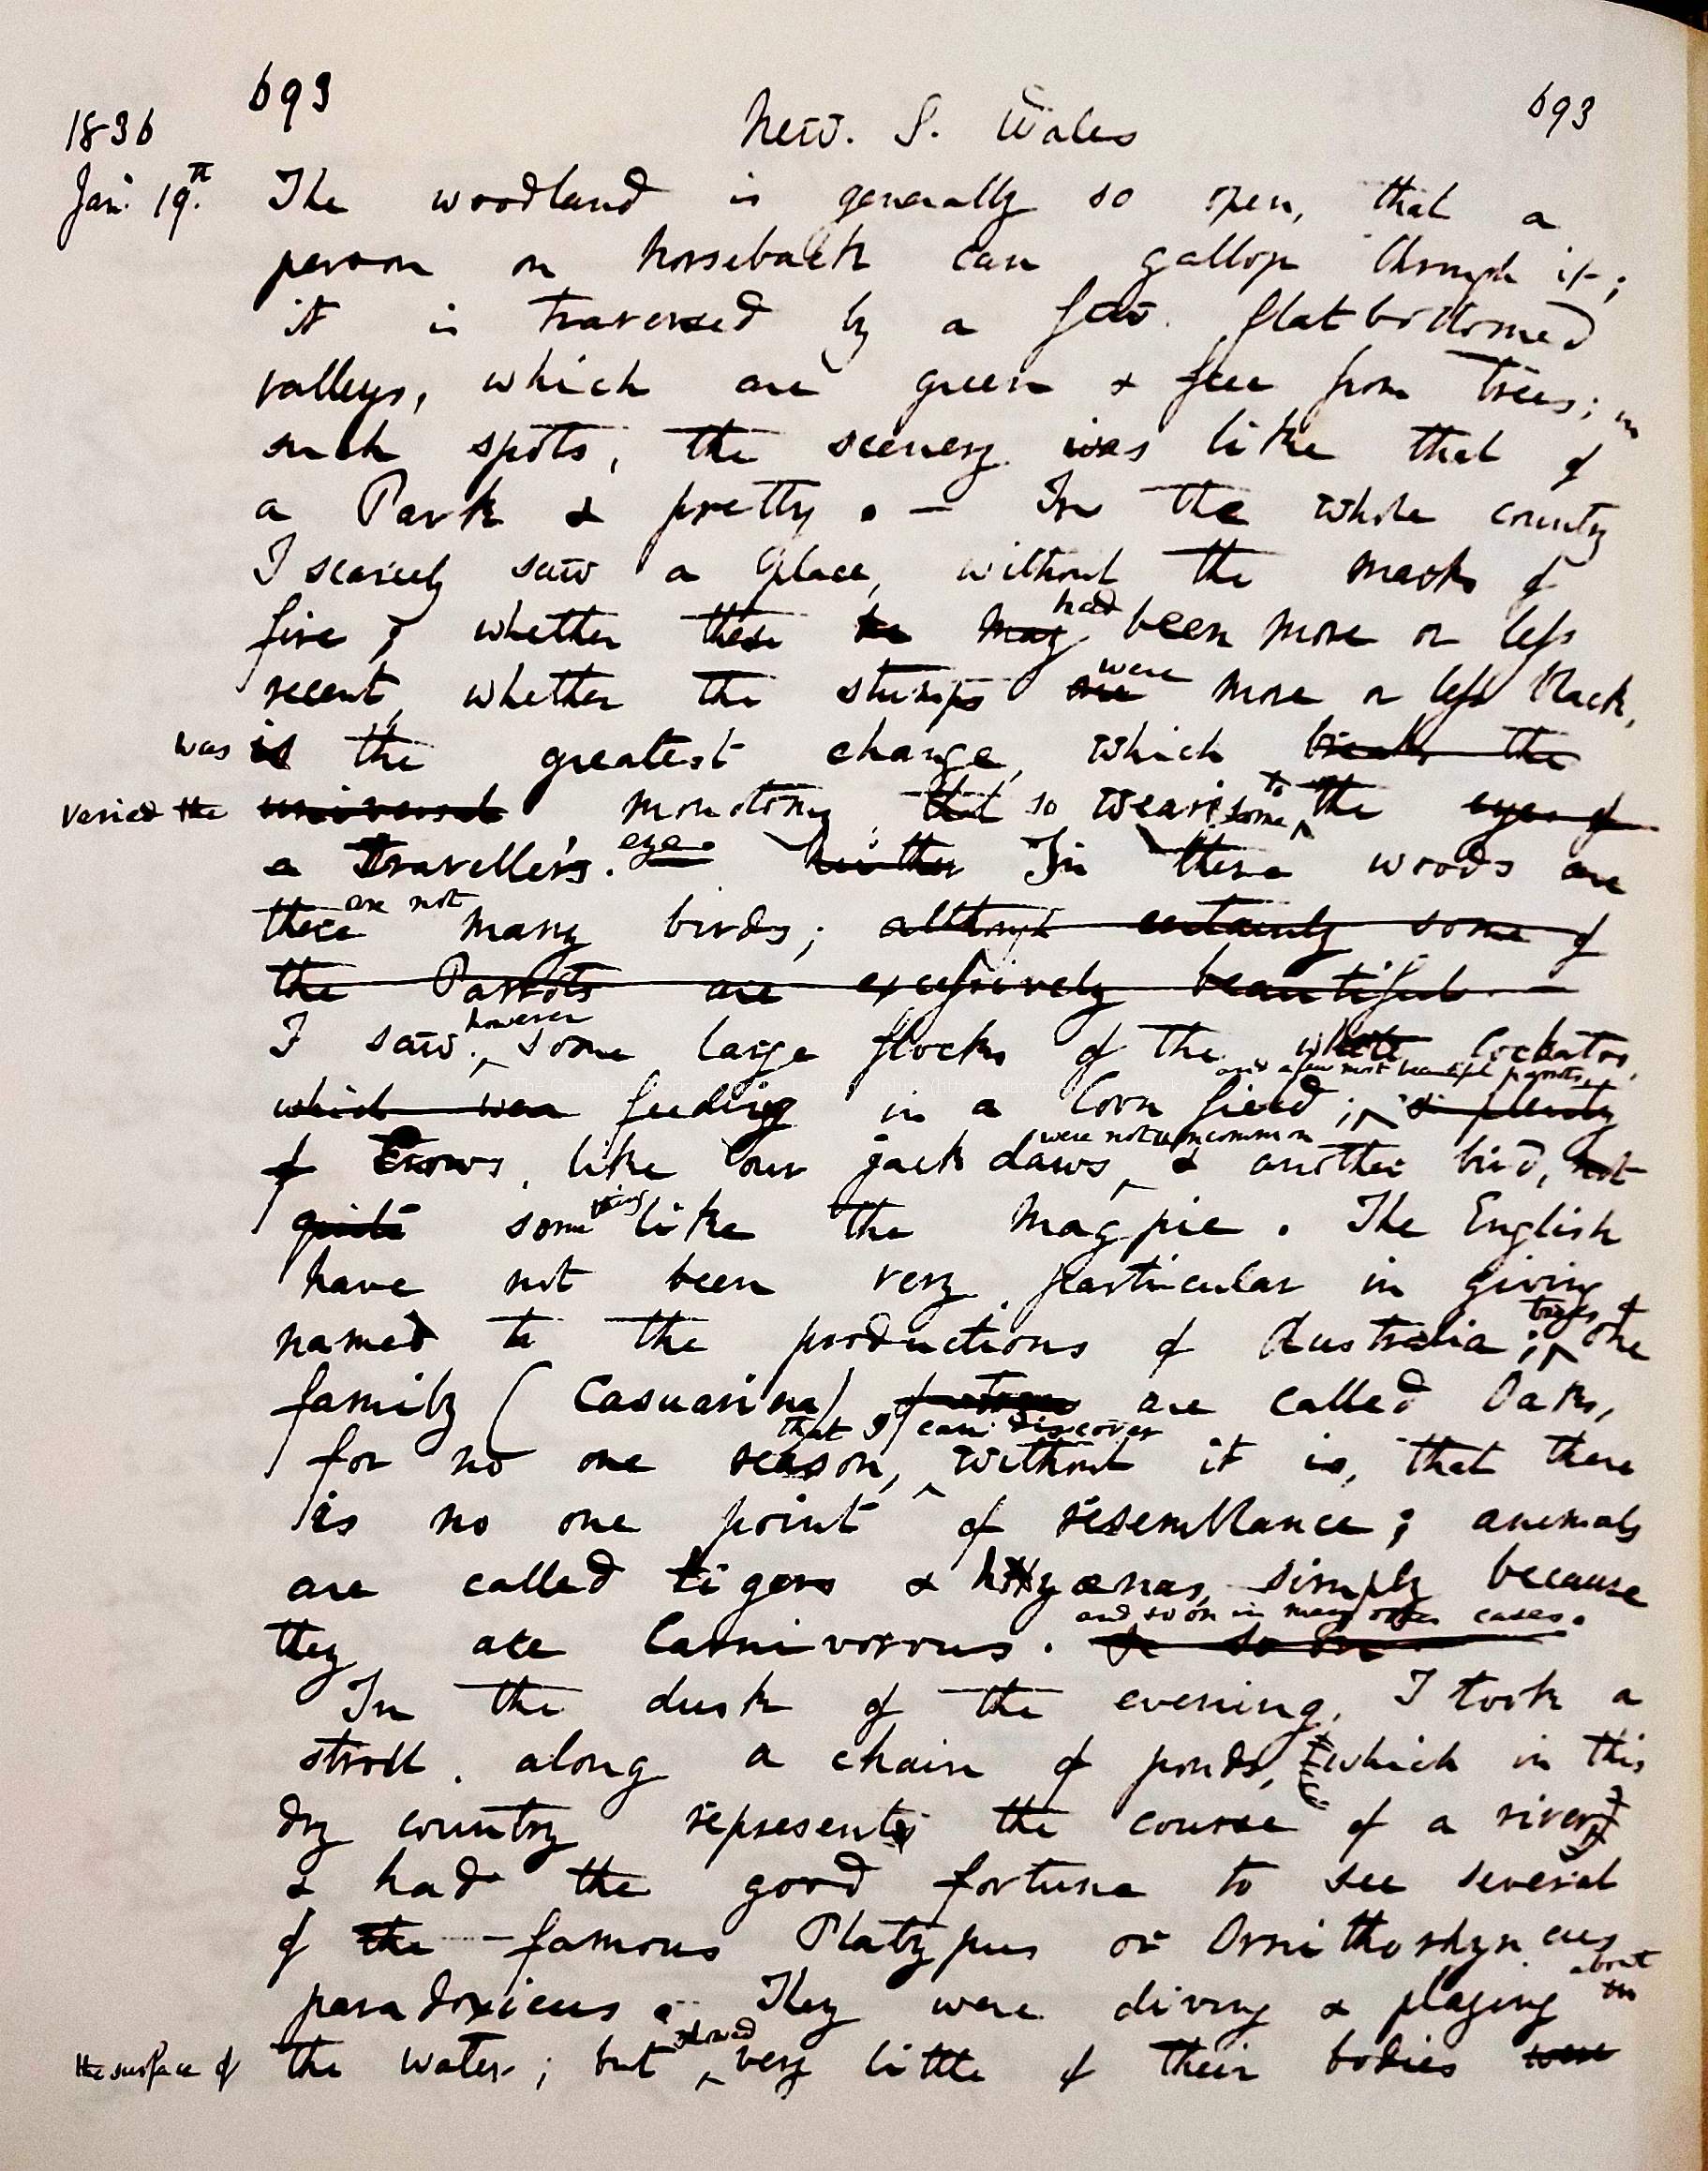 693 New. S. Wales 693
1836
Jan. 19.th The woodland is generally so open, that a
person on horseback can gallop through it;
it is traversed by a few flat bottomed
valleys, which are green & free from trees; in
such spots, the scenery was like that of
a Park & pretty. — In the whole country
I scarcely saw a place, without the marks of
had
fire; whether these be may been more or less
were
recent, whether the stumps are more or less black,
was is the greatest change, which breaks the
to
varied the universal monotony, that so wearisome the eyes of
eye.
a traveller's. In these woods are
are not
there many birds; although certainly some of
the Parrots are excessively beautiful. —
however
I saw, some large flocks of the white Cockatoo,
and a few most beautiful parrots,
which were feeding in a Corn field; & plenty
were not uncommon
of Crows, like our jack daws, & another bird, not
thing
quite some like the Magpie. The English
have not been very particular in giving
trees of
names to the productions of Australia; one
family (Casuarina) of trees are called Oaks,
that I can discover
for no one reason, without it is, that there
is no one point of resemblance; animals
are called tigers & hyænas, simply because
and so on in many other cases.
they are Carnivorous. & so on
In the dusk of the evening, I took a
stroll, along a chain of ponds, which in this
dry country represents the course of a river,
& had the good fortune to see several
of the famous Platypus or Ornithorhyncus
about
paradoxicus. They were diving & playing in
showed
the surface of the water; but very little of their bodies were